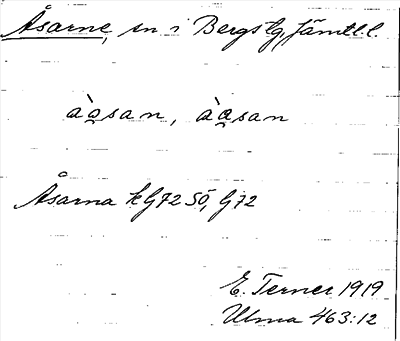 Åsarne, sn i Bergs tg, Jämtl. l.
àa̱san, àa̱san
Åsarna kG72 SÖ, G72
E. Terner 1919
Ulma 463:12